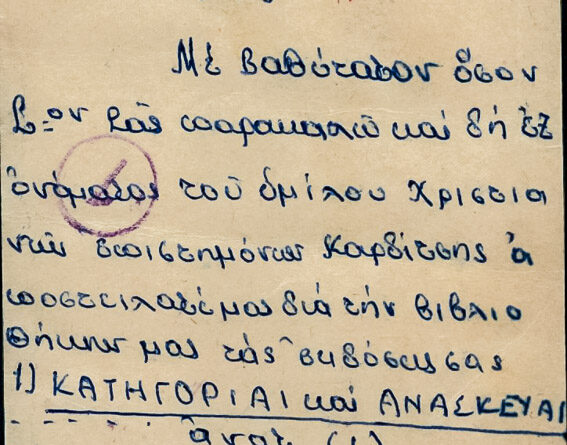 Μὲ βαθύτατον ὅσον
Σ=ον Σᾶς παρακαλῶ καὶ δὴ ἐξ
ὀνόματος τοῦ ὁμίλου Χριστια
νῶν ἐπιστημόνων Καρδίτσης ἀ
ποστείλατέ μας διὰ τὴν βιβλιο
θήκην μας τὰς ἐκδόσεις σας
1) ΚΑΤΗΓΟΡΙΑΙ καὶ ΑΝΑΣΚΕΥΑΙ